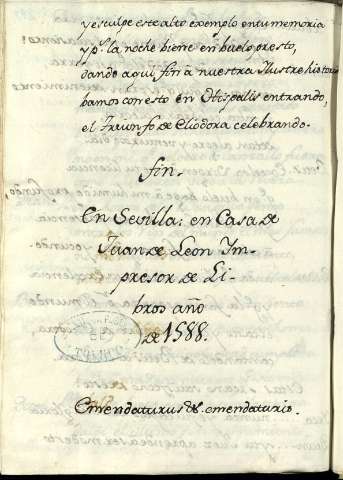 y esculpe este alto exemplo en tu memoria
y pꝰ. la noche biene en buelo presto,
dando aqui, fin à nuestra Ilustre historia
bamos con esto en Othispalis entrando,
el Triunfo de Eliodora celebrando.
fin.
En Sevilla: en Casa de
Juan de Leon Im-
presor de Li-
bros año
de 1588.
TOLEDO
Emendaturus & emendaturio.